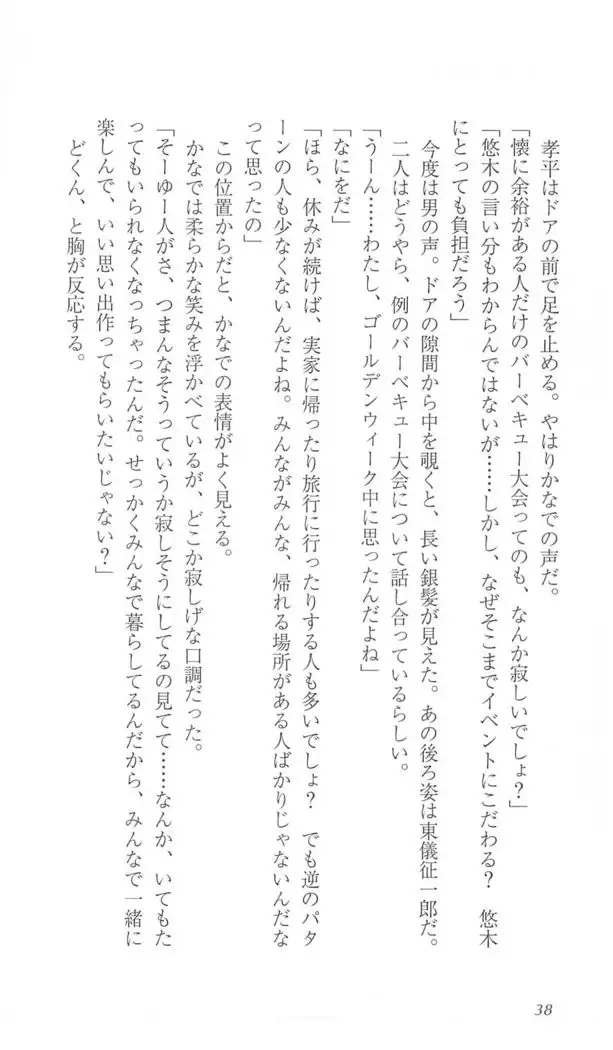 孝平はドアの前で足を止める。やはりかなでの声だ。
「懐に余裕がある人だけのバーベキュー大会ってのも、なんか寂しいでしょ？」
「悠木の言い分もわからんではないが……しかし、なぜそこまでイベントにこだわる？　悠木
にとっても負担だろう」
今度は男の声。ドアの隙間から中を覗くと、長い銀髪が見えた。あの後ろ姿は東儀征一郎だ。
二人はどうやら、例のバーベキュー大会について話し合っているらしい。
「うーん……わたし、ゴールデンウィーク中に思ったんだよね」
「なにをだ」
「ほら、休みが続けば、実家に帰ったり旅行に行ったりする人も多いでしょ？　でも逆のパタ
ーンの人も少なくないんだよね。みんながみんな、帰れる場所がある人ばかりじゃないんだな
って思ったの」
この位置からだと、かなでの表情がよく見える。
かなでは柔らかな笑みを浮かべているが、どこか寂しげな口調だった。
「そーゆー人がさ、つまんなそうっていうか寂しそうにしてるの見てて……なんか、いてもた
ってもいられなくなっちゃったんだ。せっかくみんなで暮らしてるんだから、みんなで一緒に
楽しんで、いい思い出作ってもらいたいじゃない？」
どくん、と胸が反応する。
38